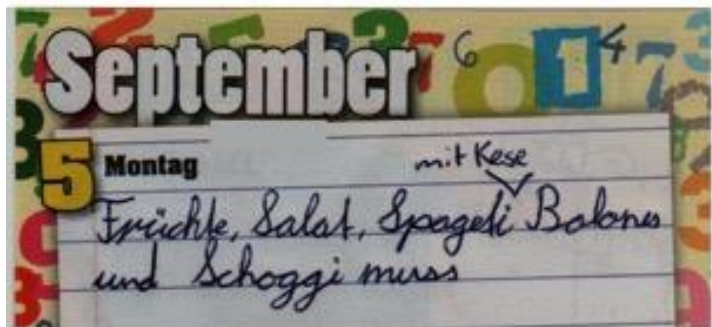 September 6 14
5 Montag
mit Kese
Früchte, Salat, Spageti Bolones
und Schoggi muss